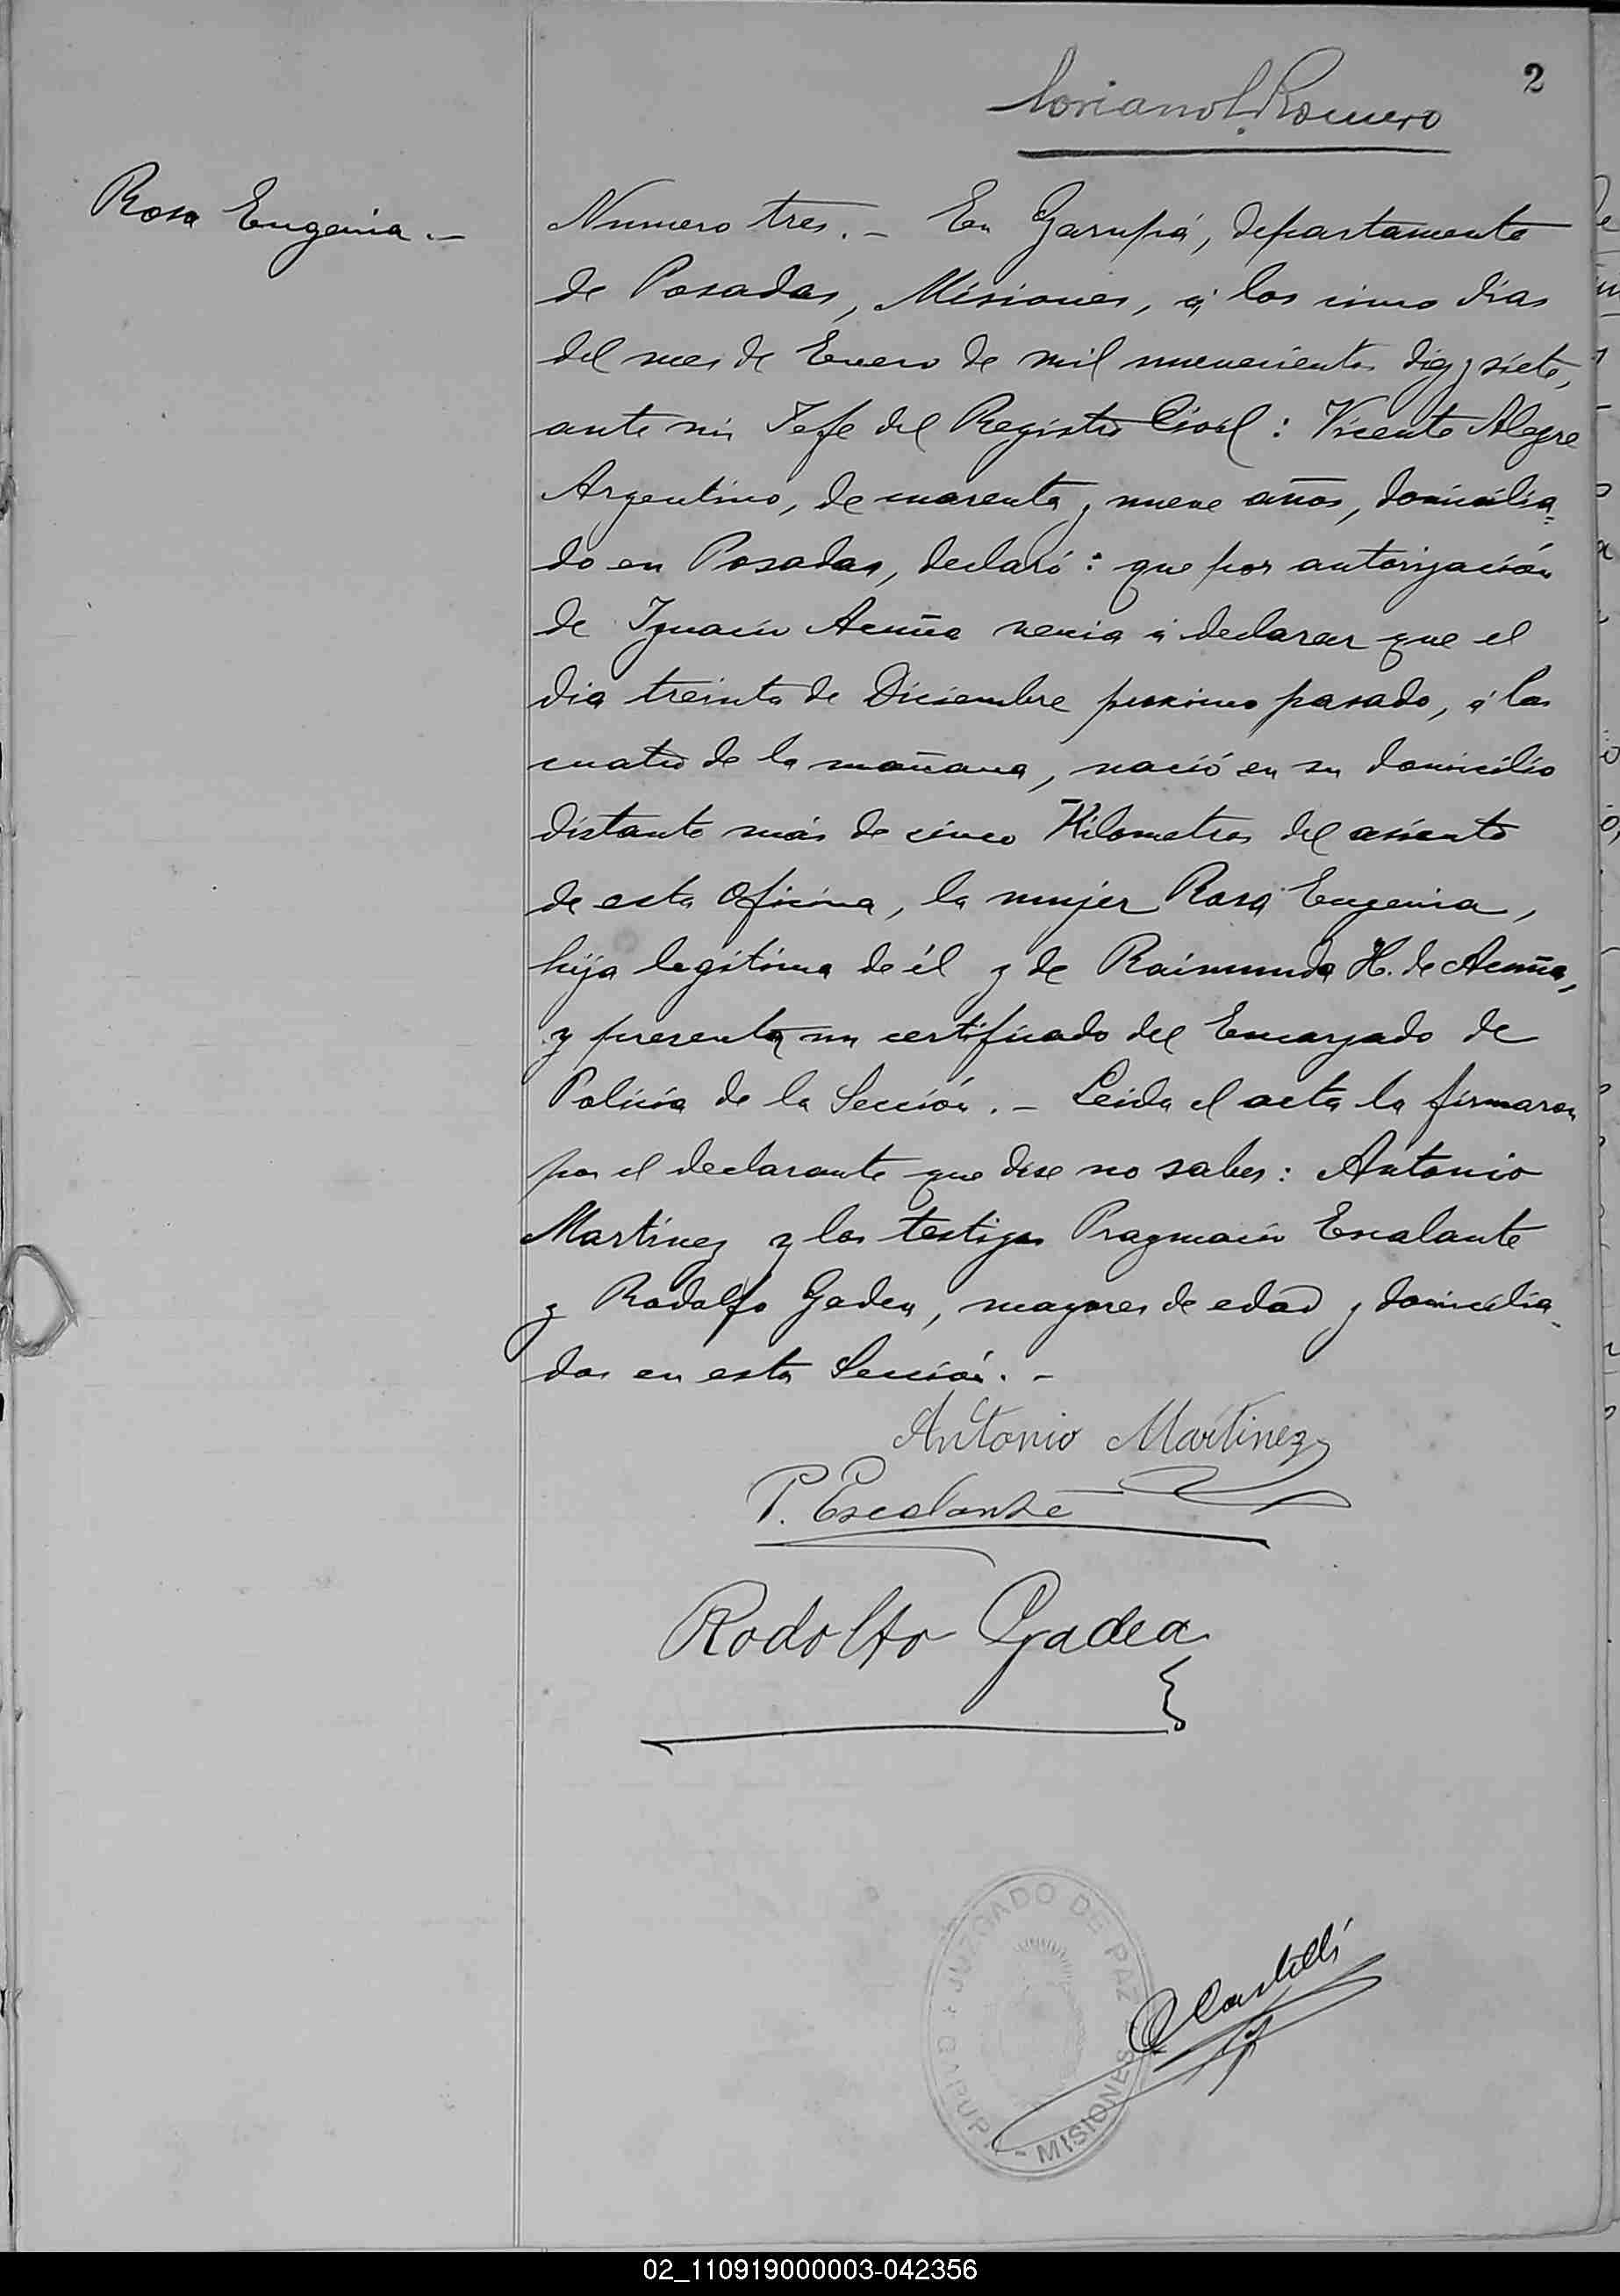 2
Romero
Rosa Eugenia.—
Numero tres.— En Garupá, departamento
de Posadas, Misiones, á los cinco dias
del mes de Enero de mil nuevecientos diez y siete,
ante mi Jefe del Registro Civil: Vicente Alegre
Argentino, de cuarenta y nueve años, domicilia=
do en Posadas, declaró: que por autorización
de Ignacio Acuña venia á declarar que el
dia treinta de Diciembre proximo pasado, á las
cuatro de la mañana, nació en su domicilio
distante más de cinco Kilometros del asiento
de esta Oficina, la mujer Rosa Eugenia,
hija legitima de él y de Raimunda H. de Acuña,
y presenta un certificado del Encargado de
Policia de la Sección.— Leida el acta la firmaron
por el declarante que dise no saber: Antonio
Martinez y los testigos Pragmacio Escalante
y Rodolfo Gadea, mayores de edad y domicilia-
dos en esta Sección.—
Antonio Martinez
P. Escalante
Rodolfo Gadea
JUZGADO DE PAZ
GARUPA - MISIONES
02_110919000003-042356